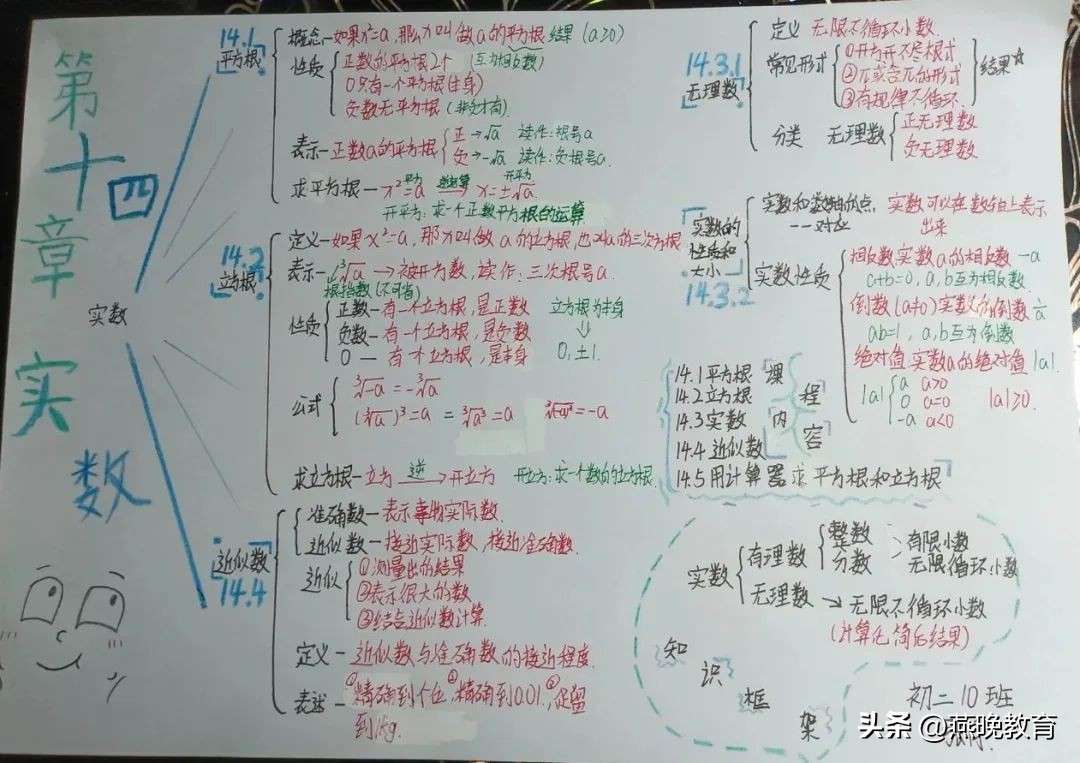 第十四章 实数
实数
14.1
平方根
概念—如果x²=a,那么x叫做a的平方根 结果(a≥0)
性质
正数的平方根2个(互为相反数)
0只有一个平方根(本身)
负数无平方根(非负才有)
表示—正数a的平方根
正→√a 读作:根号a
负→-√a 读作:负根号a.
求平方根—x²=a 平方 逆运算 → 开平方 x=±√a.
开平方:求一个正数平方根的运算
14.2
立方根
定义—如果x³=a,那x叫做a的立方根,也叫a的三次方根
表示—³√a→被开方数,读作:三次根号a.
根指数(不可省)
性质
正数—有一个立方根,是正数
负数—有一个立方根,是负数
0—有一个立方根,是本身
立方根为本身
⇓
0,±1.
公式
³√-a=-³√a
(³√a)³=a=³√a³=a ³√-a³=-a
求立方根—立方 逆→ 开立方 开立方:求一个数的立方根.
近似数
14.4
准确数—表示事物实际数.
近似数—接近实际数,接近准确数.
近似
①测量出的结果
②表示很大的数
③结合近似数计算.
定义—近似数与准确数的接近程度.
表述—①精确到个位,②精确到0.01,③
到1kg.
14.3.1
无理数
定义 无限不循环小数.
常见形式
①开方开不尽根式
②π或含π的形式
③有规律不循环.
结果☆
分类 无理数
正无理数
负无理数
实数的
性质和
大小
14.3.2
实数和数轴的点 实数可以在数轴上表示
一一对应 出来
实数性质
相反数实数a的相反数-a
a+b=0,a,b互为相反数.
倒数(a≠0)实数a的倒数1/a
ab=1,a,b互为倒数
绝对值:实数a的绝对值|a|.
|a|
a a>0
0 a=0
-a a<0
|a|≥0.
14.1平方根
14.2立方根
14.3实数
14.4近似数
14.5用计算器求平方根和立方根
课程内容
实数
有理数
整数
分数
有限小数
无限循环小数
无理数→无限不循环小数
(计算化简后结果)
知识框架
初二10班
头条@燕晚教育